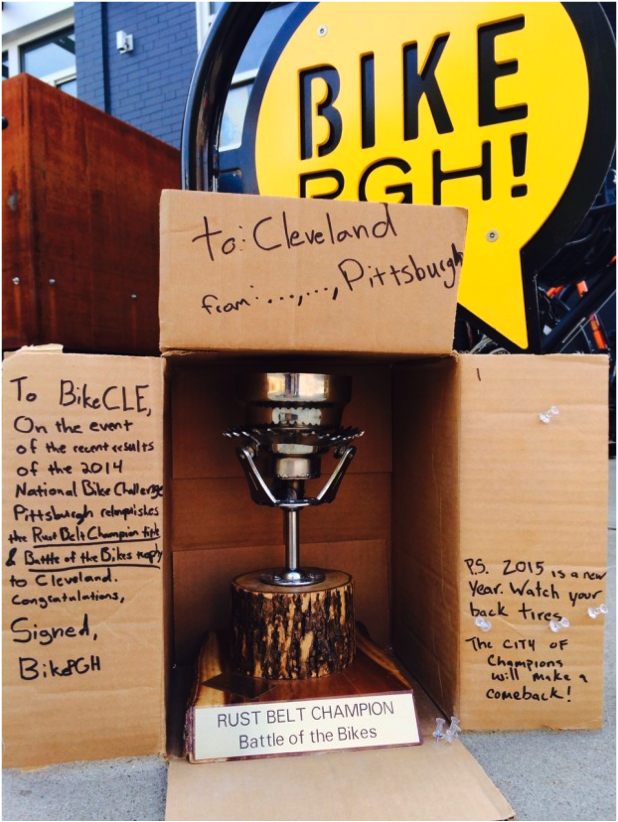 BIKE
PGH!
to: Cleveland
from: ...,...,Pittsburgh
To BikeCLE,
On the event
of the recent results
of the 2014
National Bike Challenge
Pittsburgh relinquishes
the Rust Belt Champion title
& Battle of the Bikes trophy
to Cleveland.
Congratulations,
Signed,
BikePGH
P.S. 2015 is a new
Year. Watch your
back tires
The CITY OF
Champions
will make a
comeback!
RUST BELT CHAMPION
Battle of the Bikes